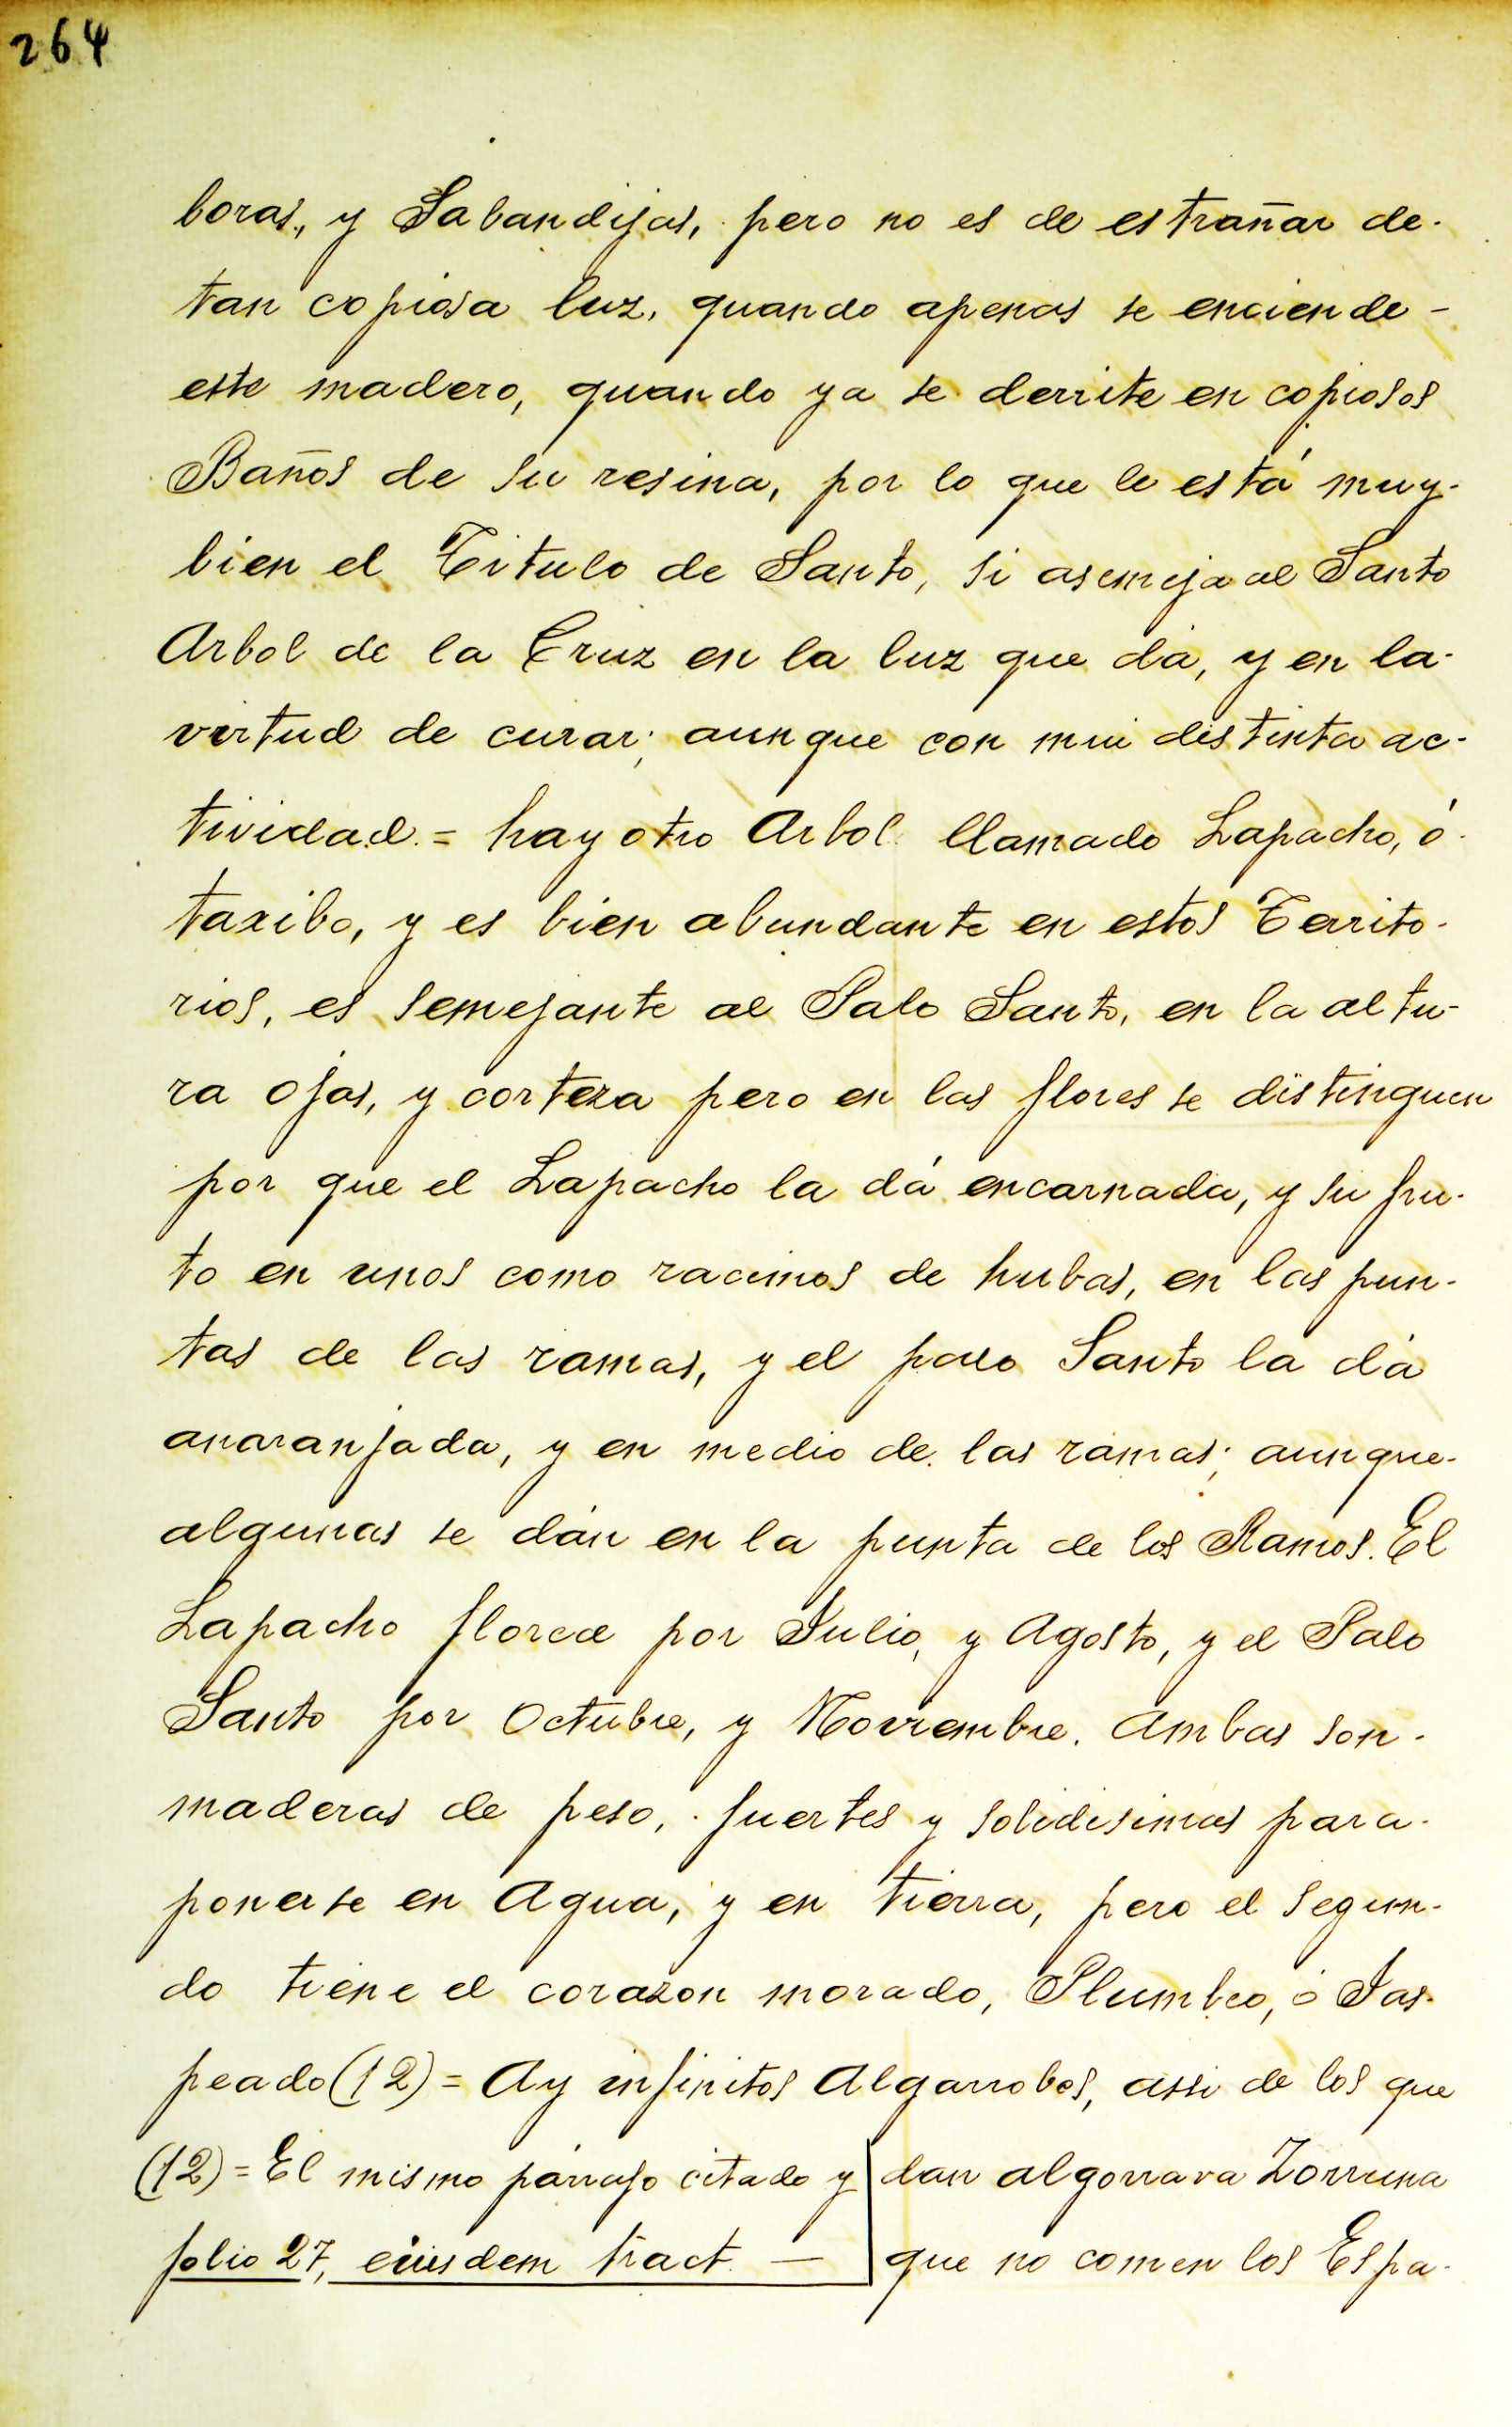 264
boras, y Sabandijas, pero no es de estrañar de-
tan copiosa luz, quando apenas se enciende -
este madero, quando ya se derrite en copiosos
Baños de su resina, por lo que le está muy-
bien el Titulo de Santo, si asemeja al Santo
Arbol de la Cruz en la luz que dá, y en la-
virtud de curar; aunque con mui distinta ac-
tividad = hay otro Arbol llamado Lapacho, ó-
taxibo, y es bien abundante en estos Territo-
rios, es semejante al Palo Santo, en la altu-
ra ojas, y corteza pero en las flores se distinguen
por que el Lapacho la dá encarnada, y su fru-
to en unos como racimos de hubas, en las pun-
tas de las ramas, y el palo Santo la dá
anaranjada, y en medio de las ramas; aunque-
algunas se dán en la punta de los Ramos. El
Lapacho florece por Julio, y Agosto, y el Palo
Santo por Octubre, y Noviembre. Ambas son-
maderas de peso, fuertes y solidisimas para-
ponerse en Agua, y en tierra, pero el segun-
do tiene el corazon morado, Plumbeo, ó Jas-
peado (12) = Ay infinitos Algarrobos, assi de los que
(12) = El mismo párrafo citado y
folio 27, eiusdem tract. —
dan algorrava Zorruna
que no comen los Espa-